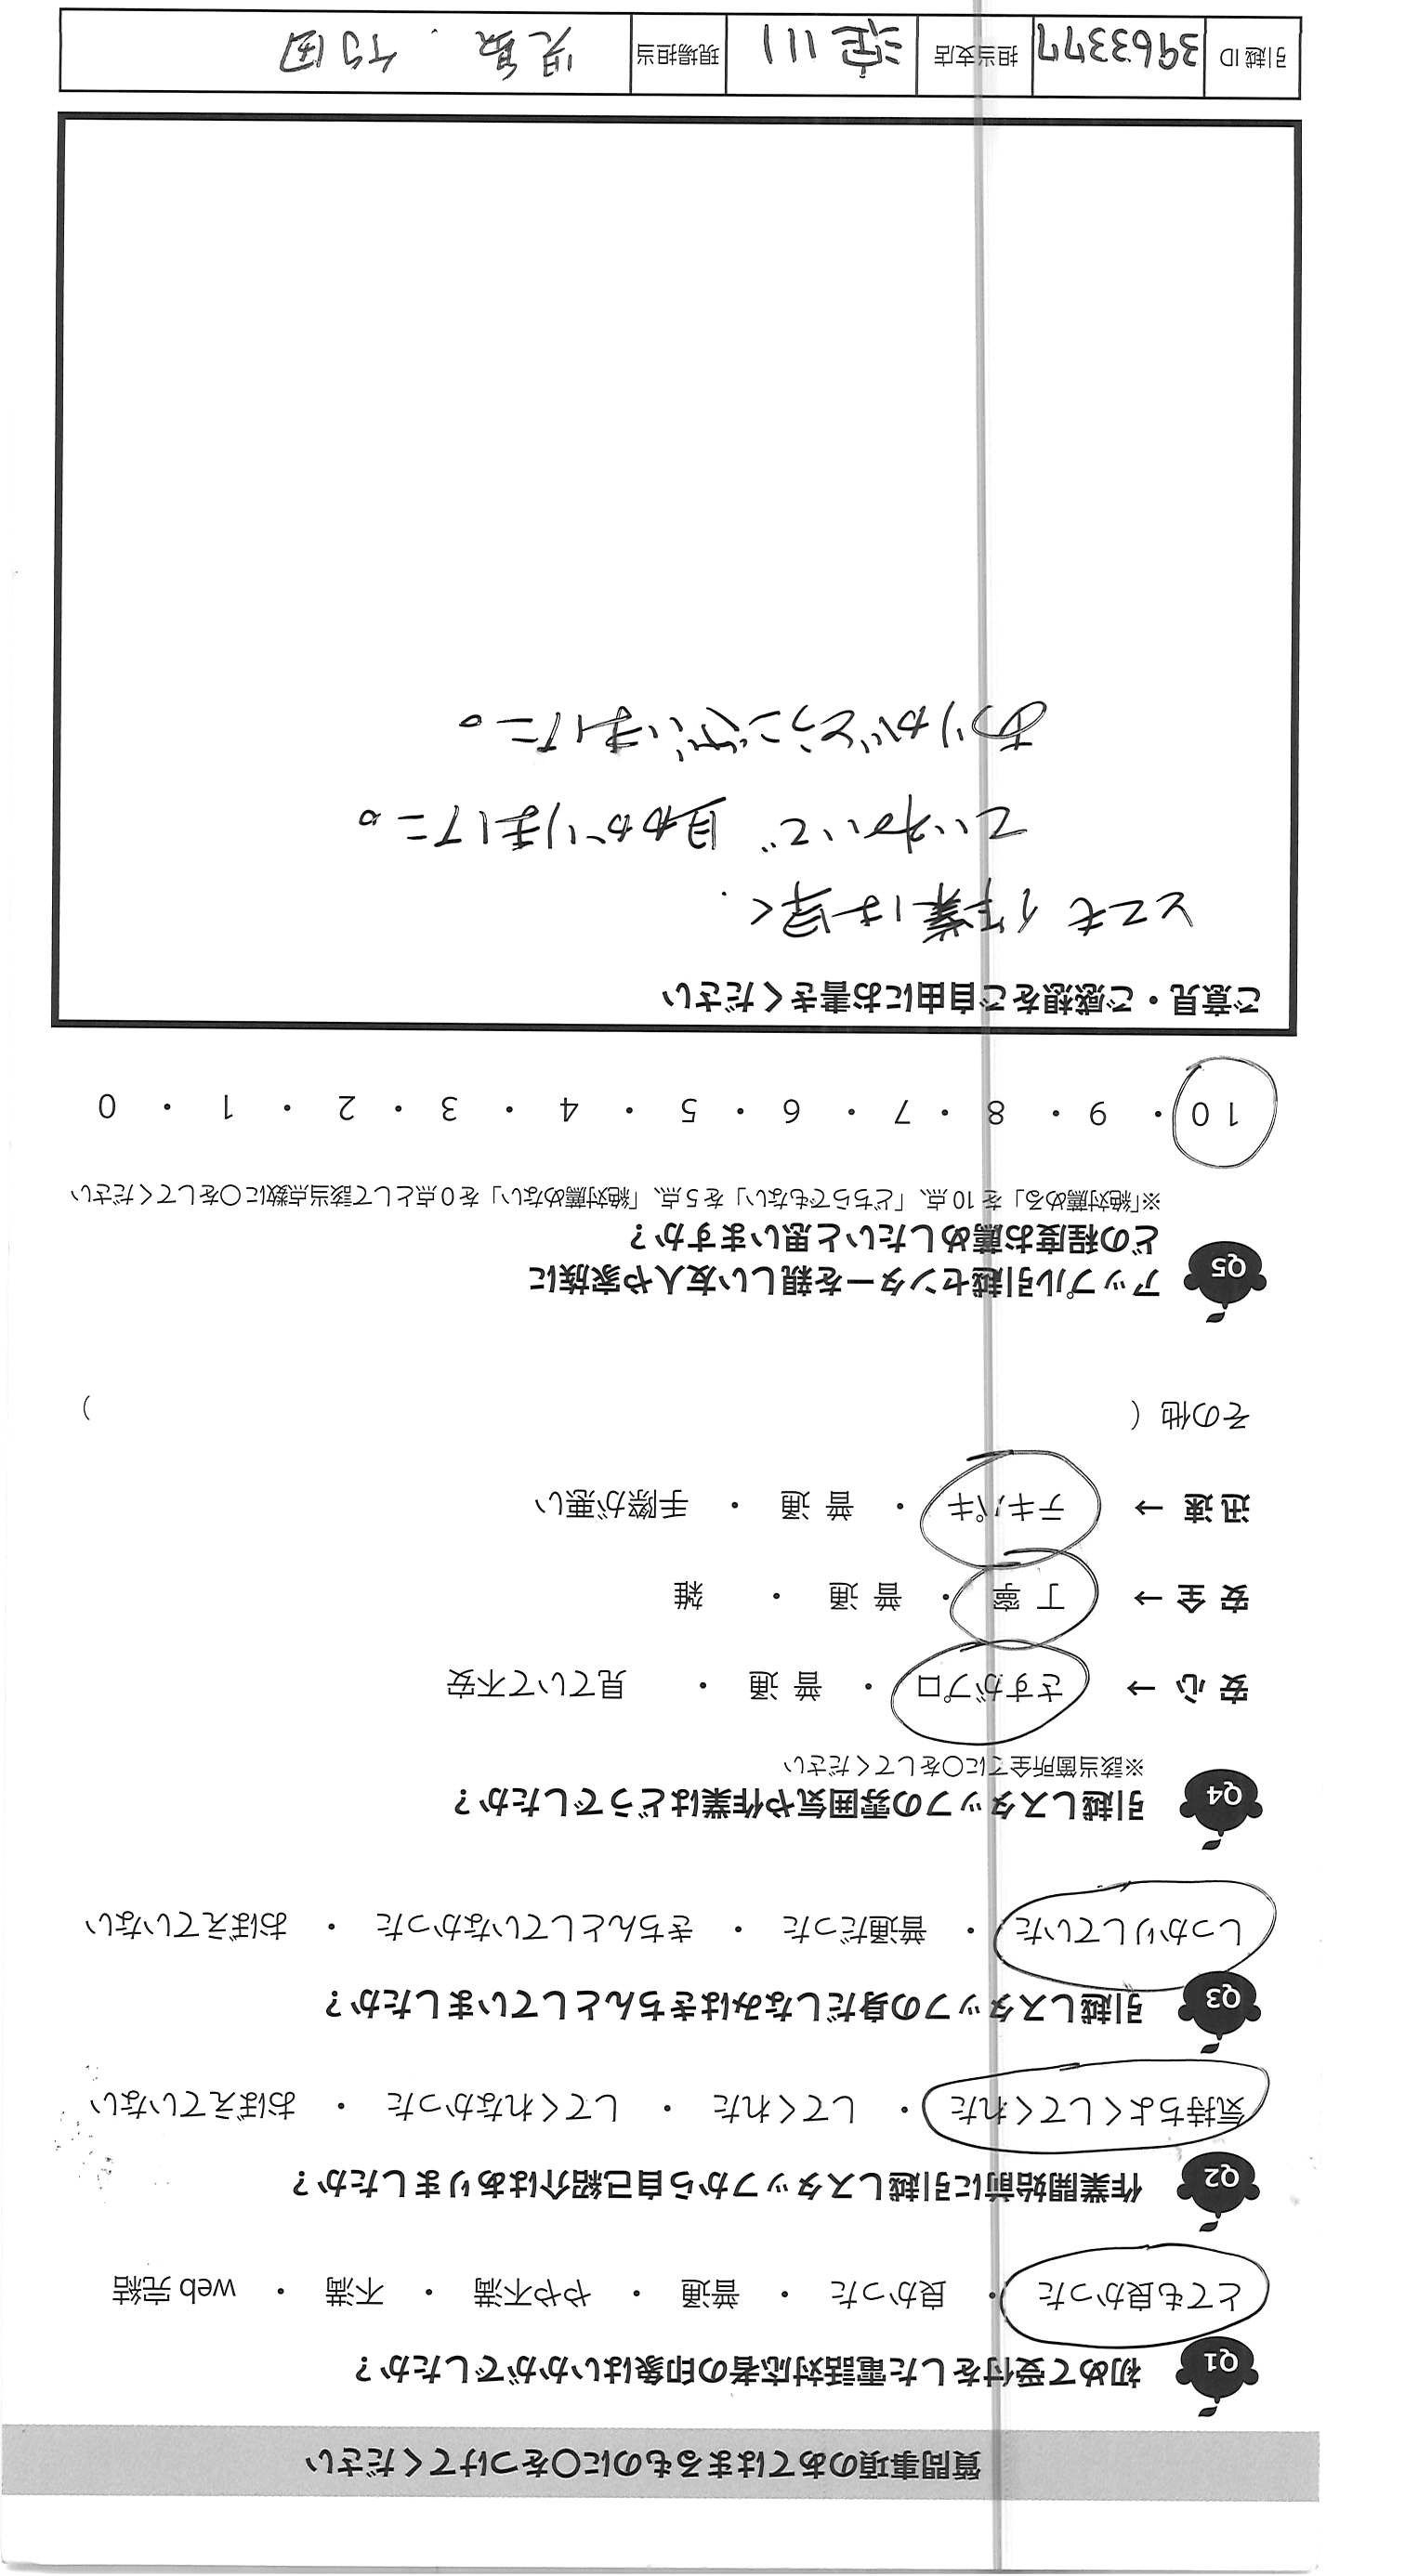 質問事項のあてはまるものに○をつけてください
Q1 初めて受付をした電話対応者の印象はいかがでしたか？
とても良かった ・ 良かった ・ 普通 ・ やや不満 ・ 不満 ・ web 完結
Q2 作業開始前に引越しスタッフから自己紹介はありましたか？
気持ちよくしてくれた ・ してくれた ・ してくれなかった ・ おぼえていない
Q3 引越しスタッフの身だしなみはきちんとしていましたか？
しっかりしていた ・ 普通だった ・ きちんとしていなかった ・ おぼえていない
Q4 引越しスタッフの雰囲気や作業はどうでしたか？
※該当箇所全てに○をしてください
安 心 → さすがプロ ・ 普 通 ・ 見ていて不安
安 全 → 丁 寧 ・ 普 通 ・ 雑
迅 速 → テキパキ ・ 普 通 ・ 手際が悪い
その他（ ）
Q5 アップル引越センターを親しい友人や家族に
どの程度お薦めしたいと思いますか？
※「絶対薦める」を 10 点、「どちらでもない」を 5 点、「絶対薦めない」を 0 点として該当点数に○をしてください
10 ・ 9 ・ 8 ・ 7 ・ 6 ・ 5 ・ 4 ・ 3 ・ 2 ・ 1 ・ 0
ご意見・ご感想をご自由にお書きください
とても作業は早く
ていねいで 助かりました。
ありがとうございました。
引越 ID 3963377 担当支店 淀川 現場担当 児島・竹田